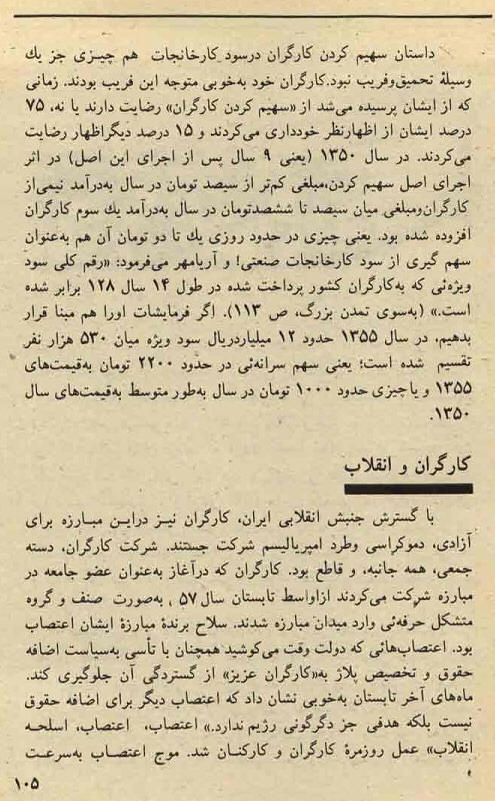 داستان سهیم کردن کارگران درسود کارخانجات هم چیزی جز یك
وسیلهٔ تحمیق‌وفریب نبود.کارگران خود به‌خوبی متوجه این فریب بودند. زمانی
که از ایشان پرسیده می‌شد از «سهیم کردن کارگران» رضایت دارند یا نه، ۷۵
درصد ایشان از اظهارنظر خودداری می‌کردند و ۱۵ درصد دیگراظهار رضایت
می‌کردند. در سال ۱۳۵۰ (یعنی ۹ سال پس از اجرای این اصل) در اثر
اجرای اصل سهیم کردن،مبلغی کم‌تر از سیصد تومان در سال به‌درآمد نیمی‌از
کارگران‌ومبلغی میان سیصد تا ششصدتومان در سال به‌درآمد یك سوم کارگران
افزوده شده بود. یعنی چیزی در حدود روزی یك تا دو تومان آن هم به‌عنوان
سهم گیری از سود کارخانجات صنعتی! و آریامهر می‌فرمود: «رقم کلی سود
ویژه‌ئی که به‌کارگران کشور پرداخت شده در طول ۱۴ سال ۱۲۸ برابر شده
است.» (به‌سوی تمدن بزرگ، ص ۱۱۳). اگر فرمایشات اورا هم مبنا قرار
بدهیم، در سال ۱۳۵۵ حدود ۱۲ میلیاردریال سود ویژه میان ۵۳۰ هزار نفر
تقسیم شده است؛ یعنی سهم سرانه‌ئی در حدود ۲۲۰۰ تومان به‌قیمت‌های
۱۳۵۵ و یاچیزی حدود ۱۰۰۰ تومان در سال به‌طور متوسط به‌قیمت‌های سال
۱۳۵۰.
کارگران و انقلاب
با گسترش جنبش انقلابی ایران، کارگران نیز دراین مبارزه برای
آزادی، دموکراسی وطرد امپریالیسم شرکت جستند. شرکت کارگران، دسته
جمعی، همه جانبه، و قاطع بود. کارگران که درآغاز به‌عنوان عضو جامعه در
مبارزه شرکت می‌کردند ازاواسط تابستان سال ۵۷ به‌صورت صنف و گروه
متشکل حرفه‌ئی وارد میدان مبارزه شدند. سلاح برندهٔ مبارزهٔ ایشان اعتصاب
بود. اعتصاب‌هائی که دولت وقت می‌کوشید همچنان با تأسی به‌سیاست اضافه
حقوق و تخصیص پلاژ به«کارگران عزیز» از گستردگی آن جلوگیری کند.
ماه‌های آخر تابستان به‌خوبی نشان داد که اعتصاب دیگر برای اضافه حقوق
نیست بلکه هدفی جز دگرگونی رژیم ندارد.» اعتصاب، اعتصاب، اسلحه
انقلاب» عمل روزمرهٔ کارگران و کارکنان شد. موج اعتصاب به‌سرعت
۱۰۵